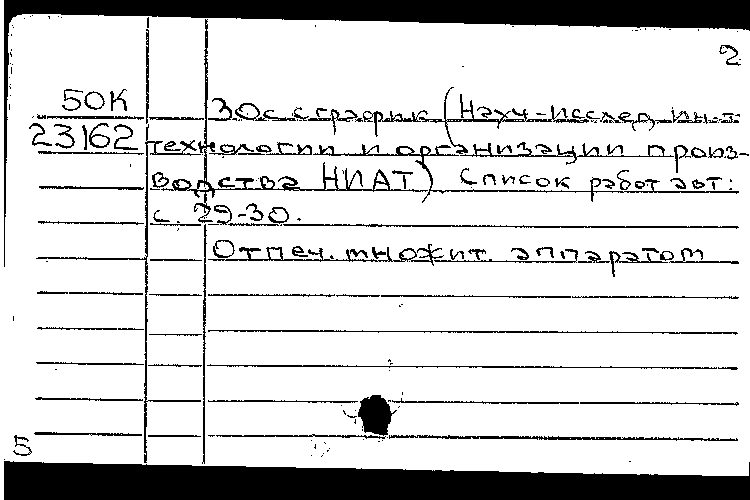 2
50К
23162
30с с график (Науч-исслед. ин-т
технологии и организации произ-
водства НИАТ) Список работ авт:
с. 29-30.
Отпеч. множит. аппаратом
5